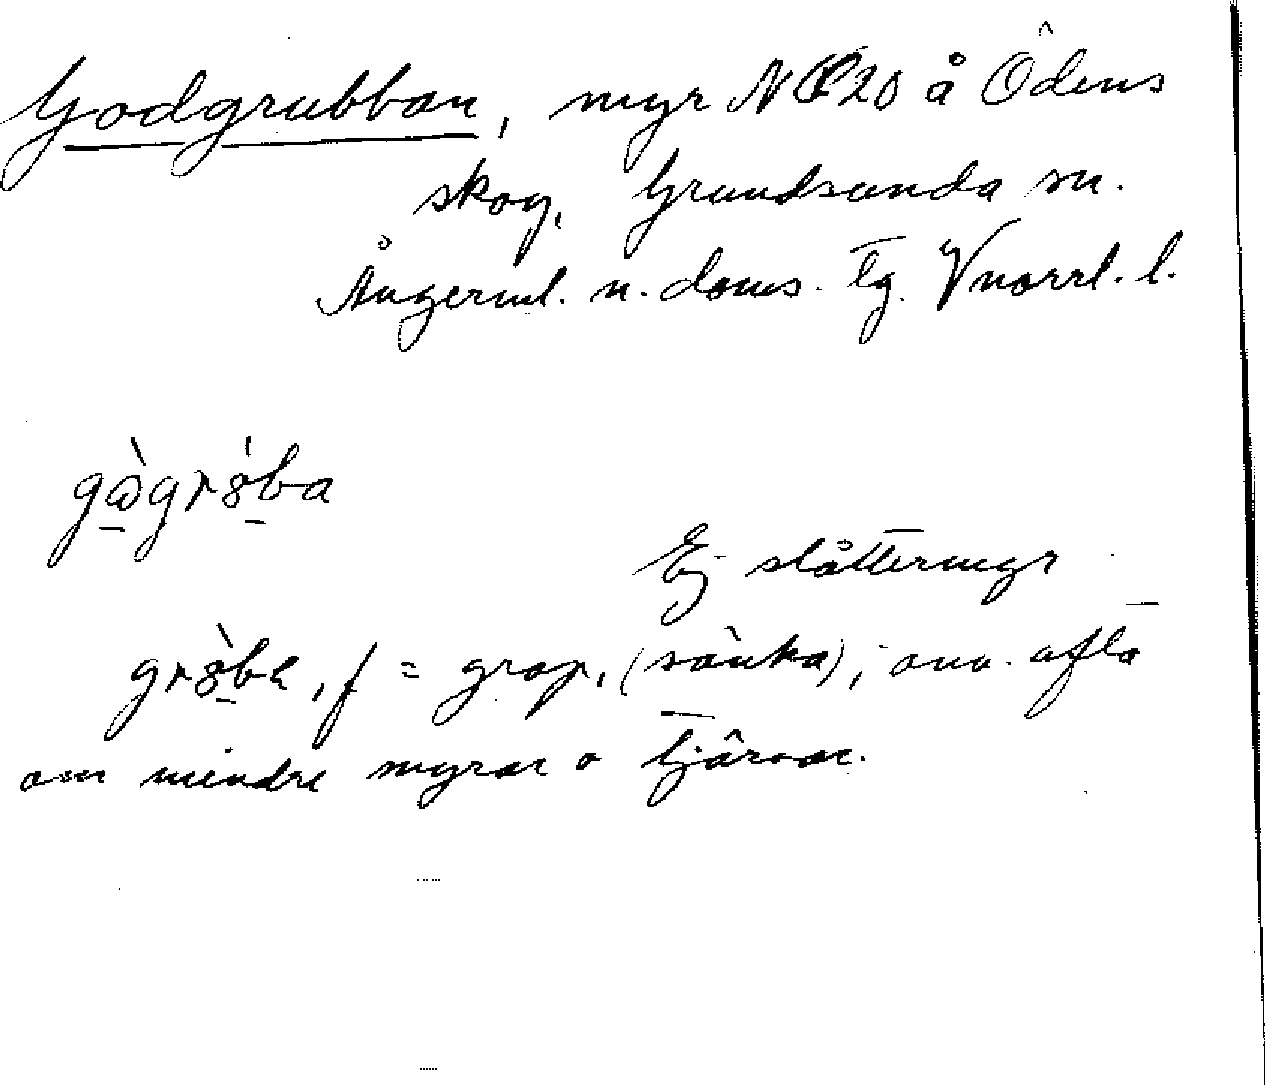 Godgrubban, myr N 20 å Ödens
skog, Grundsunda sn.
Ångerml. n. doms. tg. Vnorrl. l.
gògrôba
Ej slåttermyr
grôba, f = grop, (sänka), anv. ofta
om mindre myrar o tjärnar.